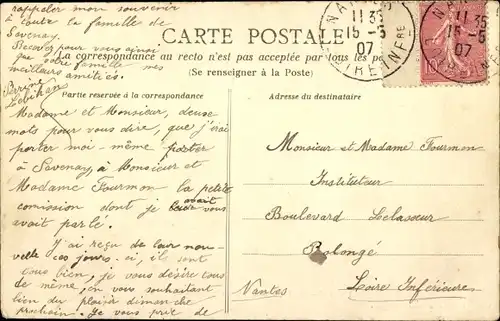 rappeler mon souvenir
à toute la famille de
Savenay.
Recevez pour vous ainsi
que votre famille mes
meilleurs amitiés.
CARTE POSTALE
La correspondance au recto n'est pas acceptée par tous les pa
(Se renseigner à la Poste)
NANTES
11 35
15-5
07
LOIRE INFRE
NA
11 35
15-5
07
Partie réservée à la correspondance
Adresse du destinataire
Madame et Monsieur, deux
mots pour vous dire, que j'irai
porter moi-même porter
à Savenay à Monsieur et
Madame Fourmon la petite
comission dont je vous
avait
avait parlé.
J'ai reçu de leur nou-
velle ces jours-ci, il, sont
tous bien, je vous désire tous
de même, en vous souhaitant
bien du plaisir dimanche
prochain. Je vous prie de
Monsieur et Madame Fourmon
Instituteur
Boulevard Lelasseur
Prolongé
Nantes
Loire Inférieure